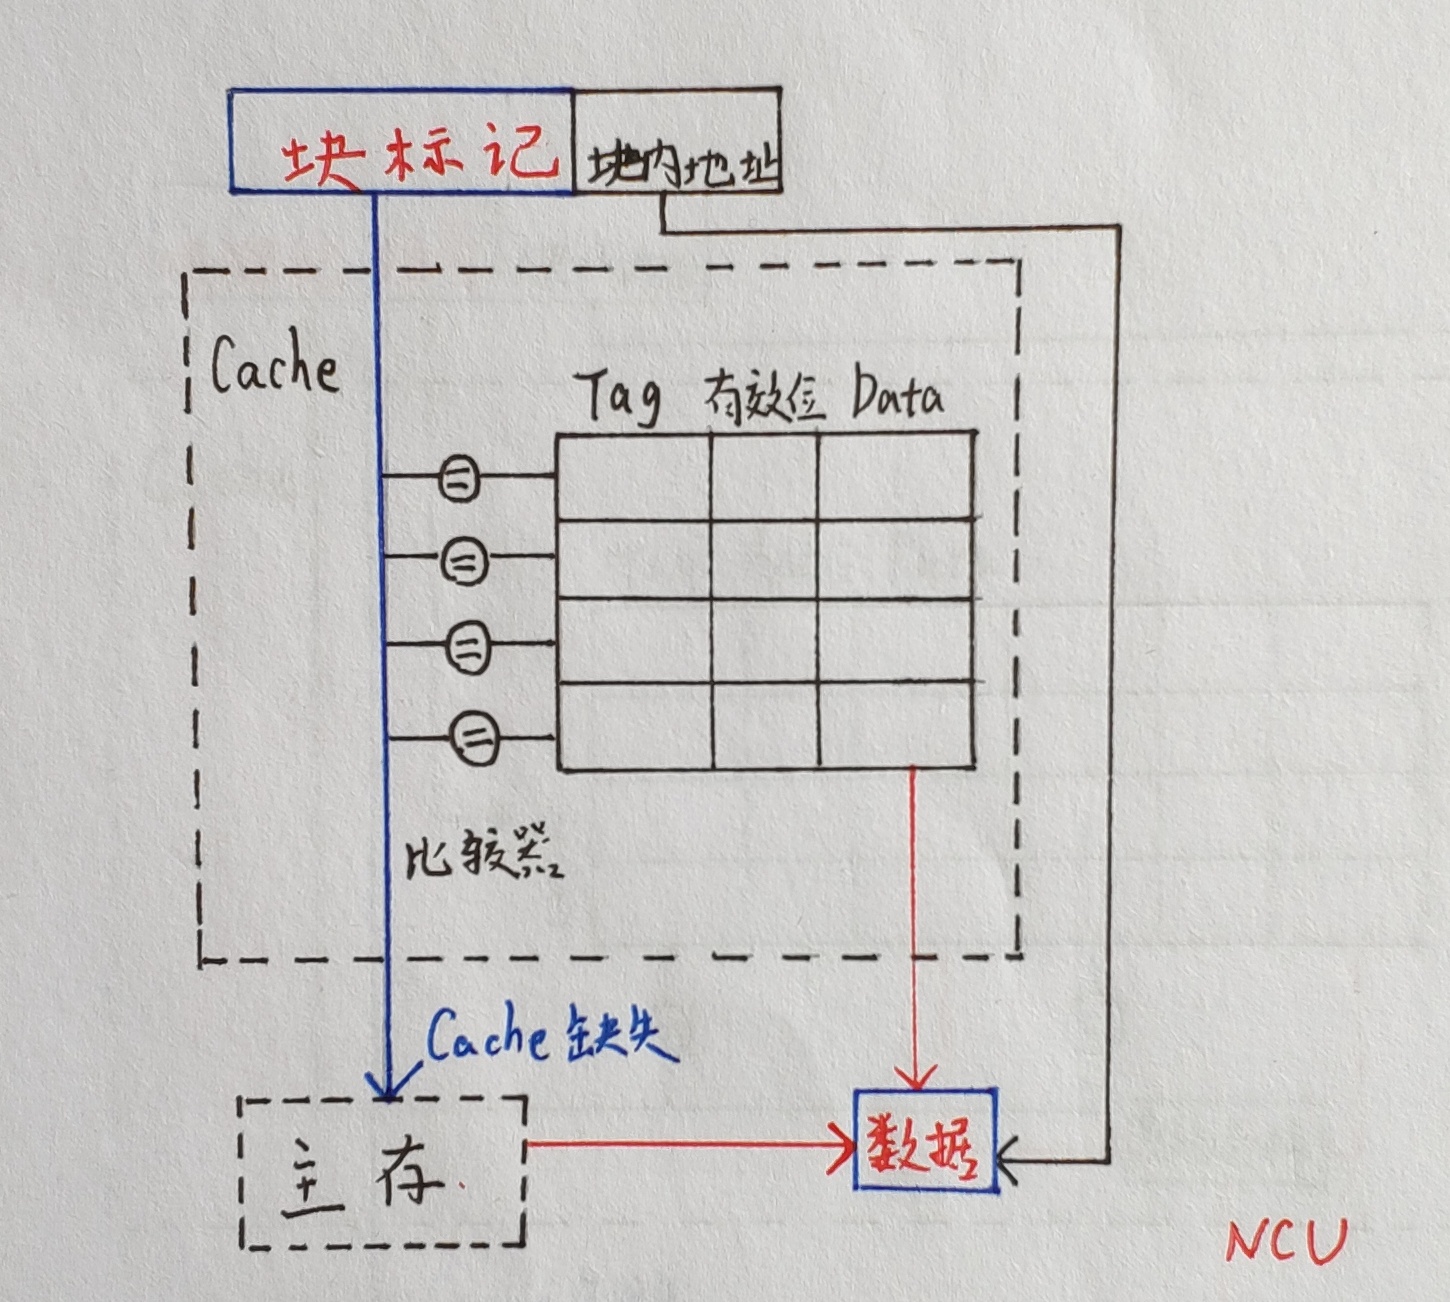 块标记 块内地址
Cache
Tag 有效位 Data
=
=
=
=
比较器
Cache 缺失
主存
数据
NCU